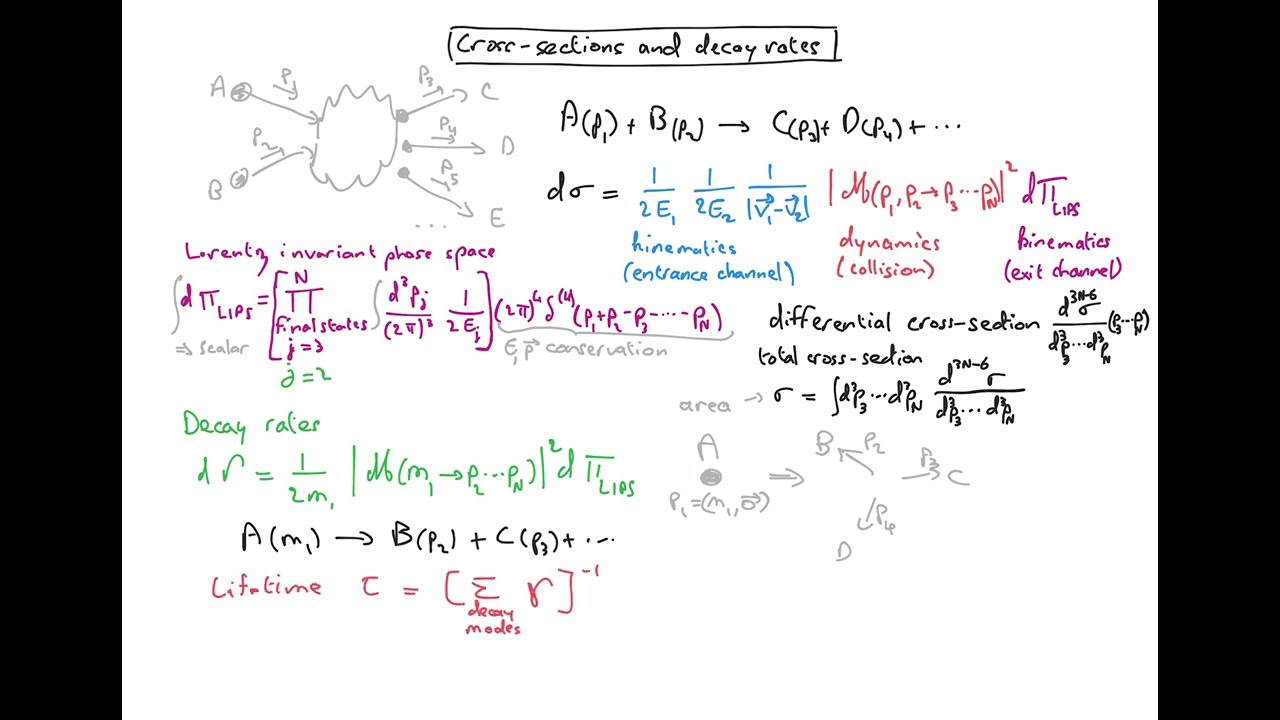 Cross-sections and decay rates
A p₁ p₃ C
p₂ p₄ D
B p₅
... E
A(p₁) + B(p₂) → C(p₃) + D(p₄) + ...
dσ = 1/2E₁ 1/2E₂ 1/|v⃗₁-v⃗₂| |M(p₁, p₂ → p₃ ... p_N)|² dΠ_LIPS
kinematics (entrance channel)
dynamics (collision)
kinematics (exit channel)
Lorentz invariant phase space
∫dΠ_LIPS = [ N Π final states j=3 ∫ d³p_j/(2π)³ 1/2E_j ] (2π)⁴ δ⁽⁴⁾(p₁+p₂-p₃-...-p_N)
⇒ scalar
E, p⃗ conservation
j=2
differential cross-section d^{3N-6}σ/d³p₃...d³p_N (p₃...p_N)
total cross-section
area → σ = ∫d³p₃...d³p_N d^{3N-6}σ/d³p₃...d³p_N
Decay rates
dΓ = 1/2m₁ |M(m₁ → p₂...p_N)|² dΠ_LIPS
A(m₁) → B(p₂) + C(p₃) + ...
A ⇒ B p₂ p₃ C
p₁=(m₁, 0⃗) p₄
D
Lifetime τ = [ Σ decay modes Γ ]⁻¹